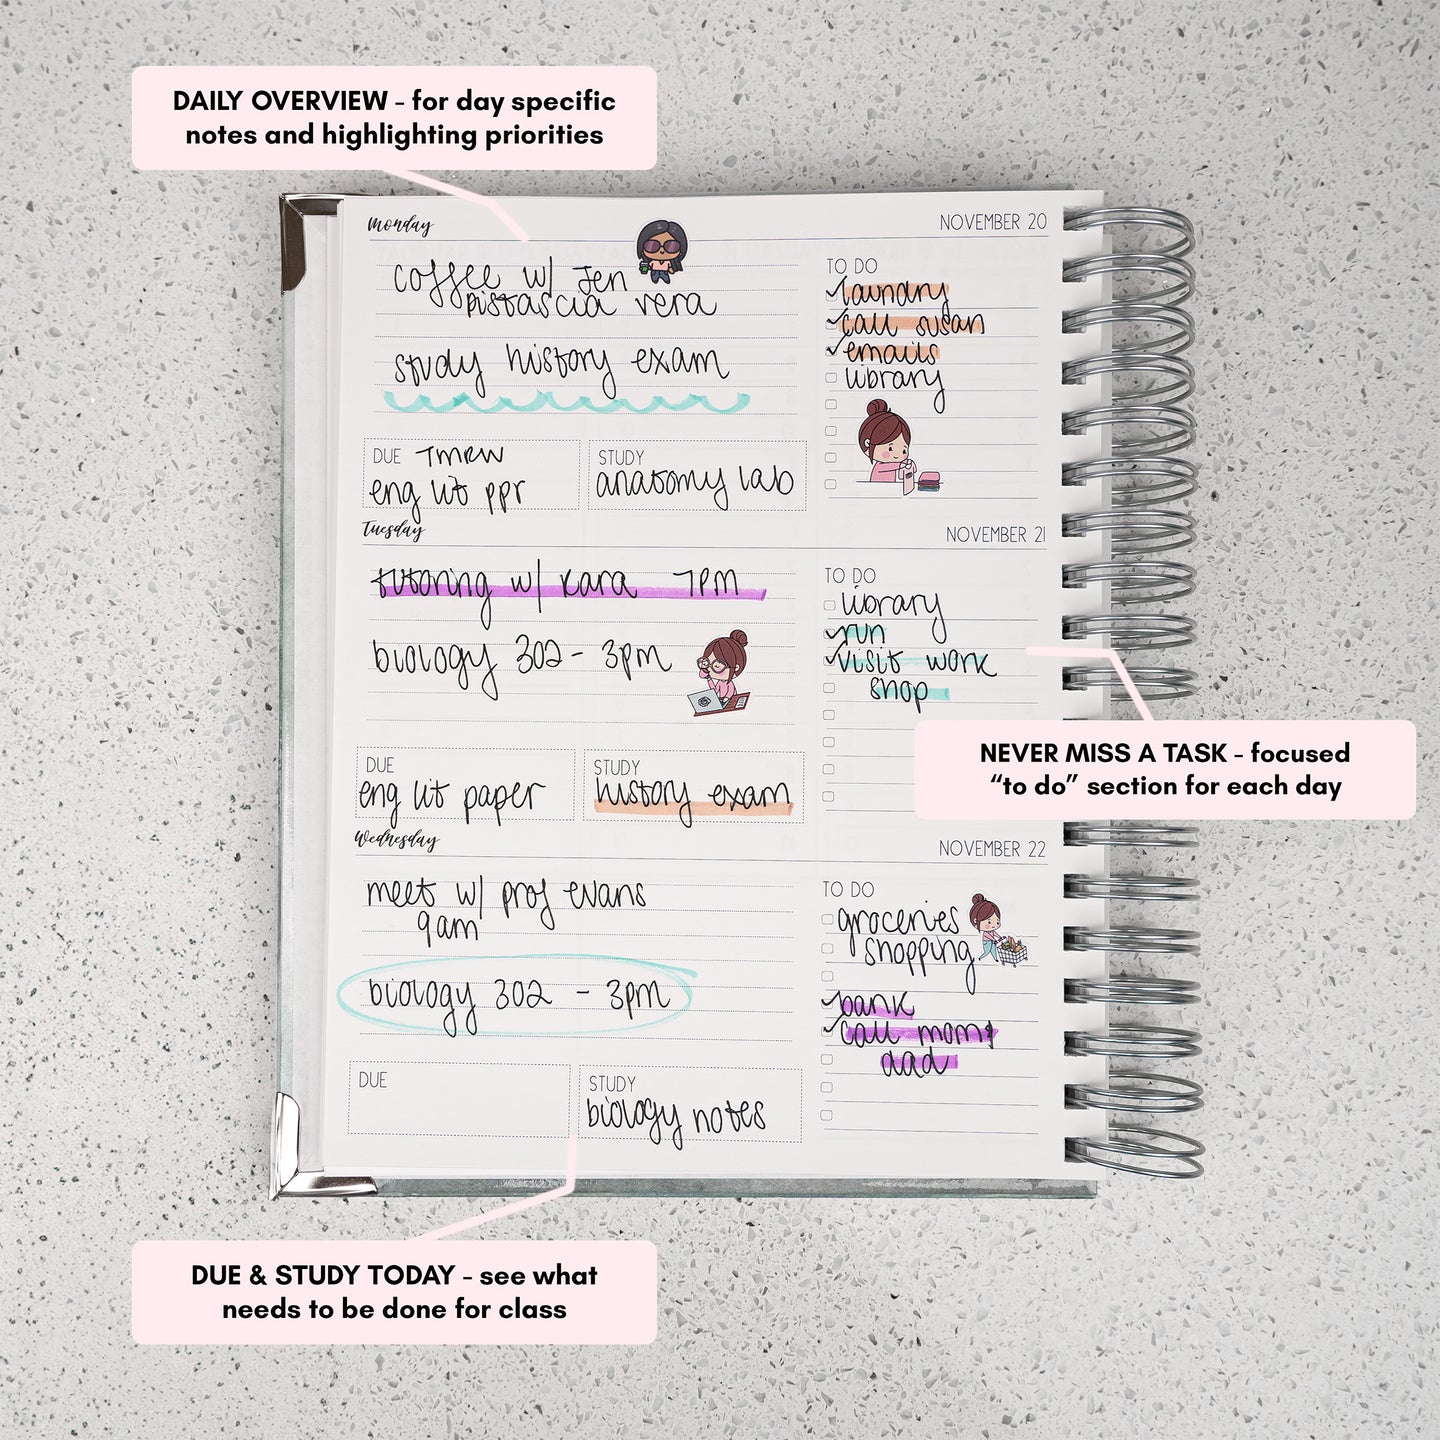 DAILY OVERVIEW - for day specific
notes and highlighting priorities
Monday
NOVEMBER 20
coffee w/ Jen
pistascia vera
study history exam
TO DO
laundry
call susan
emails
library
DUE TMRW
eng lit ppr
STUDY
anatomy lab
Tuesday
NOVEMBER 21
tutoring w/ Kara 7PM
biology 302 - 3pm
TO DO
library
run
visit work
shop
NEVER MISS A TASK - focused
“to do” section for each day
DUE
eng lit paper
STUDY
history exam
Wednesday
NOVEMBER 22
meet w/ prof evans
9am
biology 302 - 3pm
TO DO
groceries
shopping
bank
call mom &
dad
DUE
STUDY
biology notes
DUE & STUDY TODAY - see what
needs to be done for class